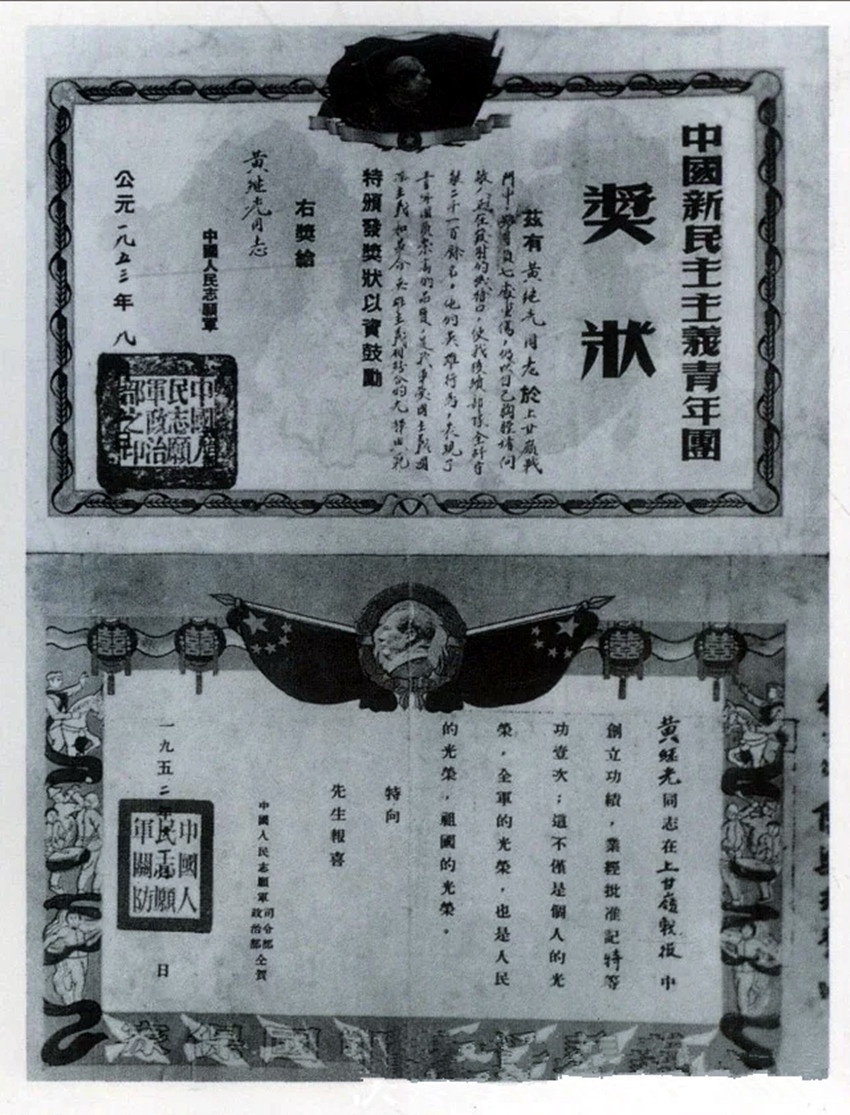 中國新民主主義青年團
獎狀
茲有黃継光同志於上甘嶺戰
鬥中，身負七處重傷，仍以自己胸膛堵向
敵人正在發射的機槍口，使我後續部隊全歼守
敵二千一百餘名，他的英雄行为，表現了
青年團員崇高的品質，是我軍愛國主義國
际主義和革命英雄主義相結合的光輝典范
特頒發獎狀以資鼓勵
右獎給
黃继光同志
中國人民志願軍
公元一九五三年八
中國人
民志願
軍政治
部之印
黃継光同志在上甘嶺戰役中
創立功績，業經批准記特等
功壹次；這不僅是個人的光
榮，全軍的光榮，也是人民
的光榮，祖國的光榮。
特向
先生報喜
中國人民志願軍司令部政治部仝賀
一九五二年 日
中國人
民志願
軍關防